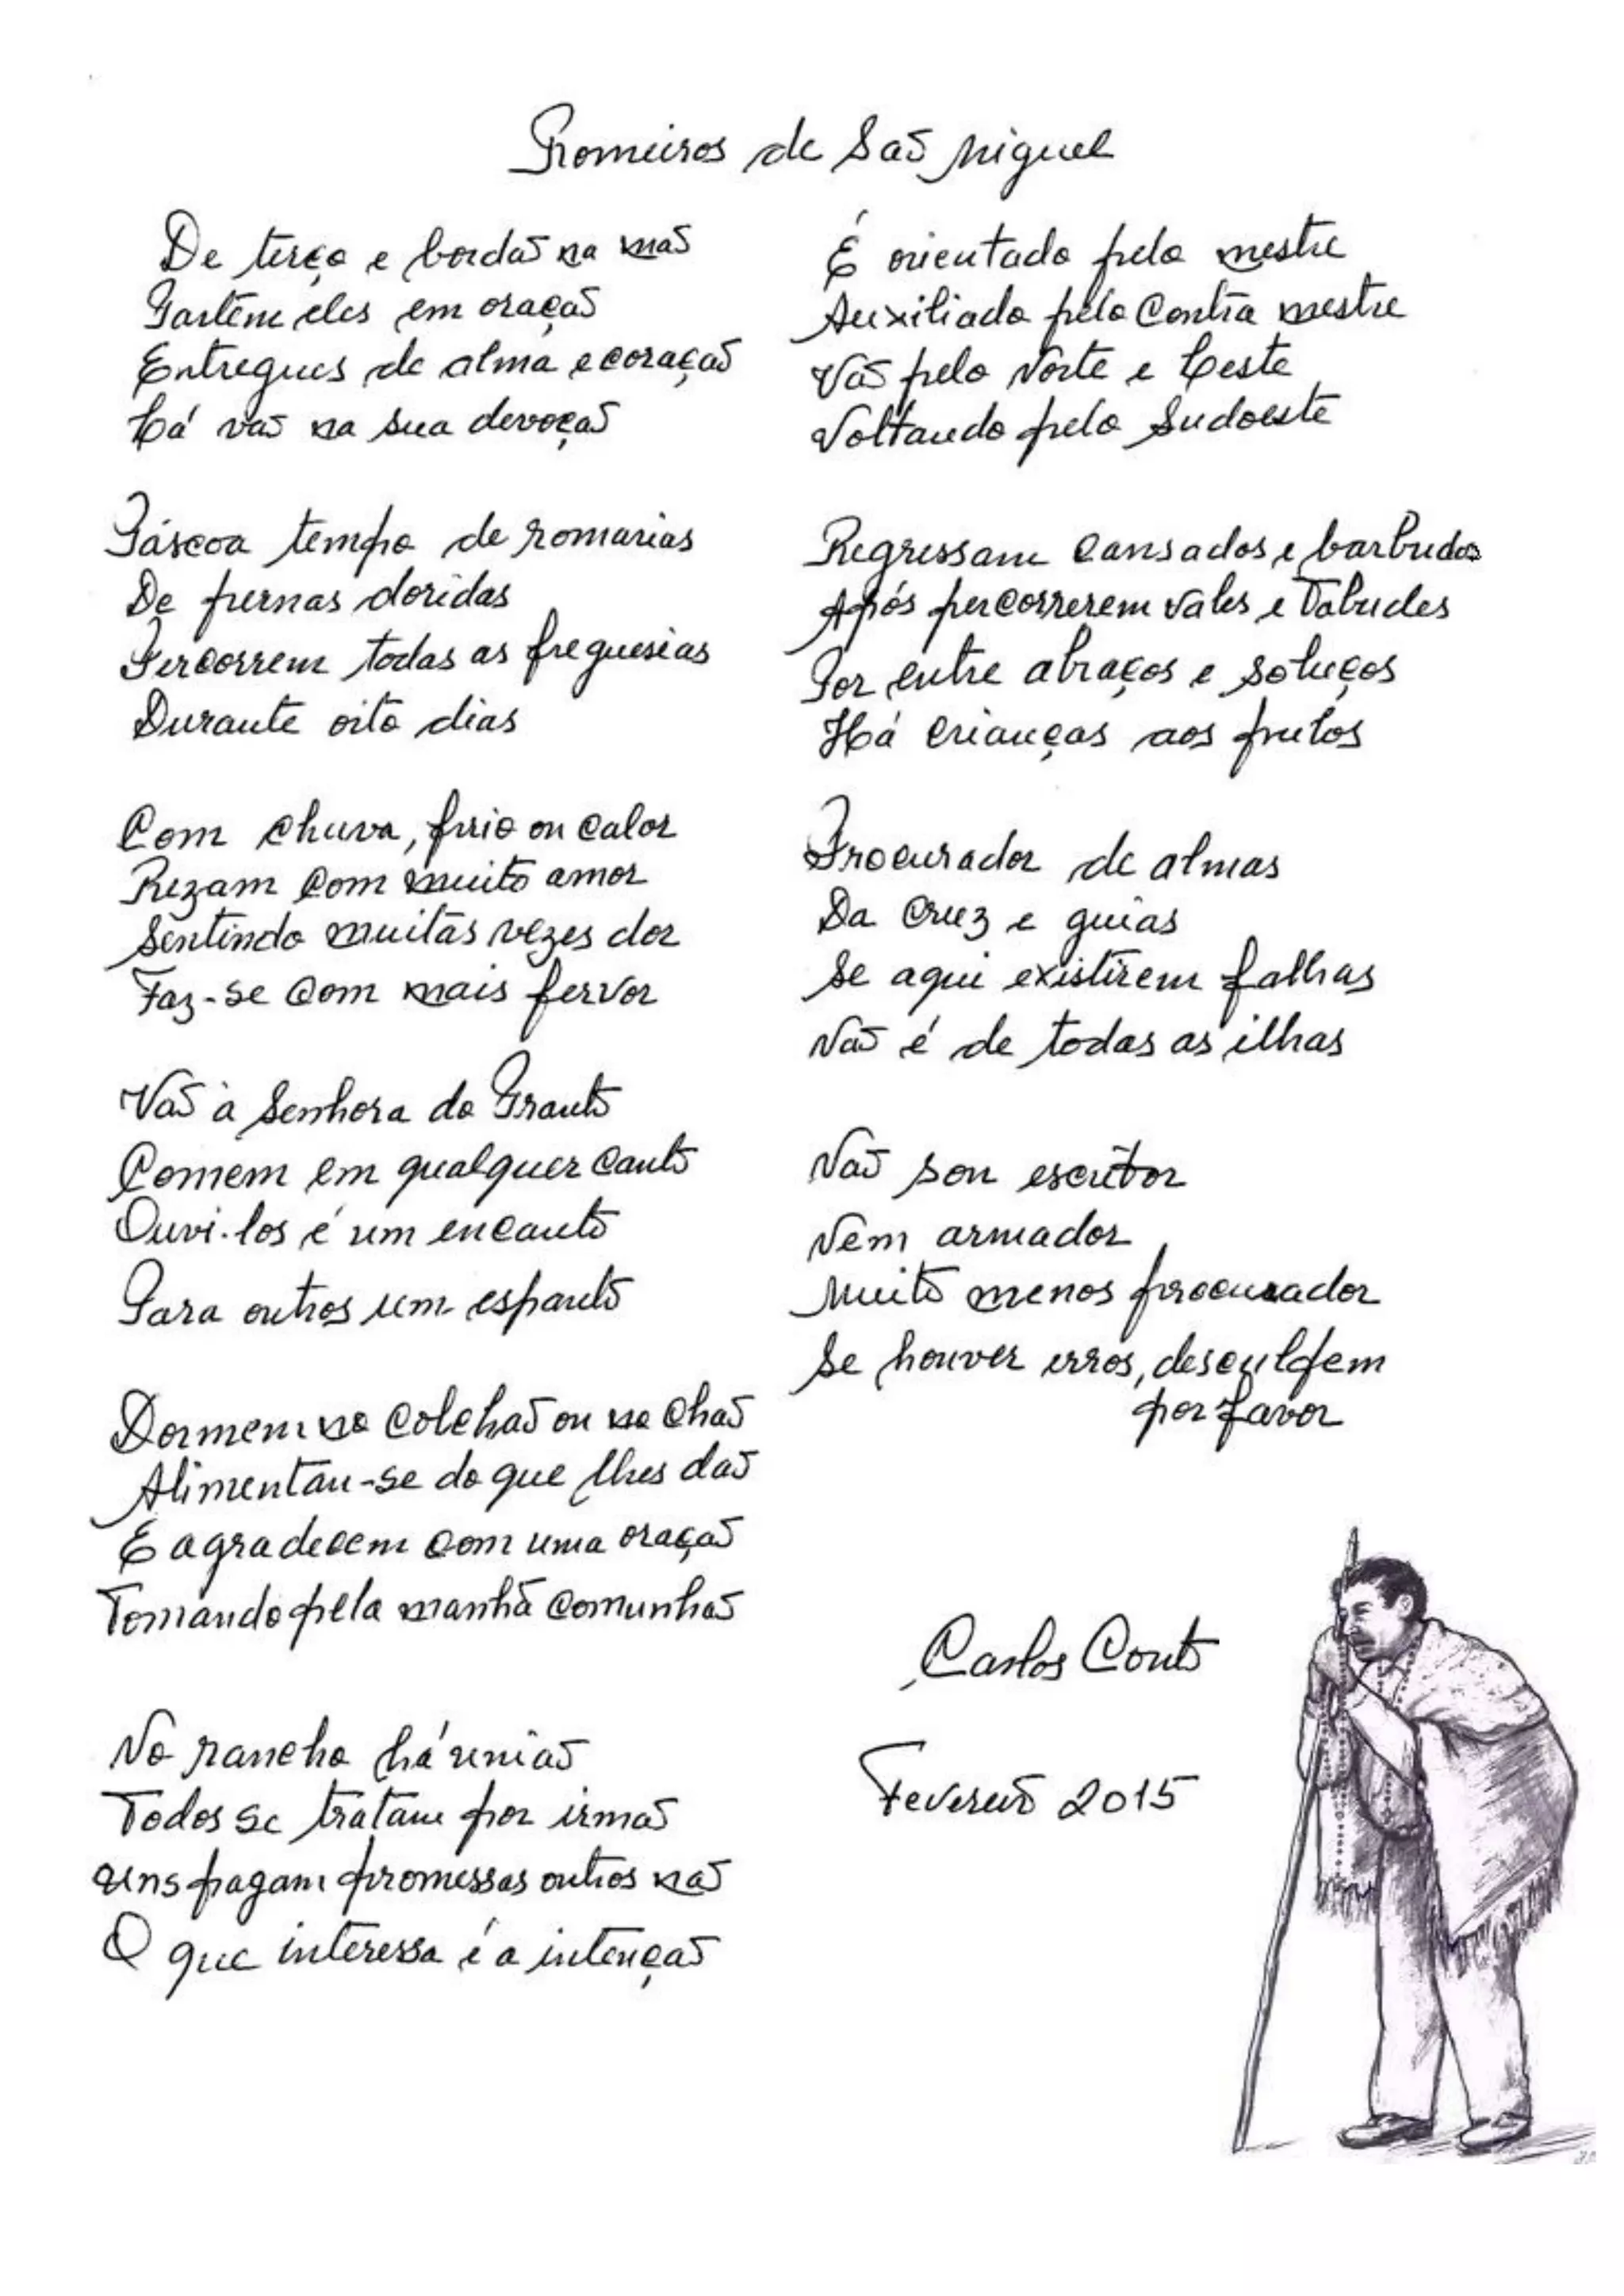 Romeiros de São Miguel
De terço e bordão na mão
Partem eles em oração
Entregues de alma e coração
Lá vão na sua devoção
Páscoa tempo de romarias
De pernas doridas
Percorrem todas as freguesias
Durante oito dias
Com chuva, frio ou calor
Rezam com muito amor
Sentindo muitas vezes dor
Faz-se com mais fervor
Vão à Senhora do Pranto
Comem em qualquer canto
Ouvi-los é um encanto
Para outros um espanto
Dormem no colchão ou no chão
Alimentan-se do que lhes dão
E agradecem com uma oração
Tomando pela manhã comunhão
No rancho há união
Todos se tratam por irmão
Uns pagam promessas outros não
O que interessa é a intenção
É orientado pelo mestre
Auxiliado pelo Contra mestre
Vão pelo Norte e Leste
Voltando pelo Sudoeste
Regressam cansados e barbudos
Após percorrerem vales e Taludes
Por entre abraços e soluços
Há crianças aos pulos
Procurador de almas
Da Cruz e guias
Se aqui existirem falhas
Não é de todas as ilhas
Não sou escritor
Nem armador
Muito menos procurador
Se houver erros, desculpem
por favor
Carlos Couto
Fevereiro 2015